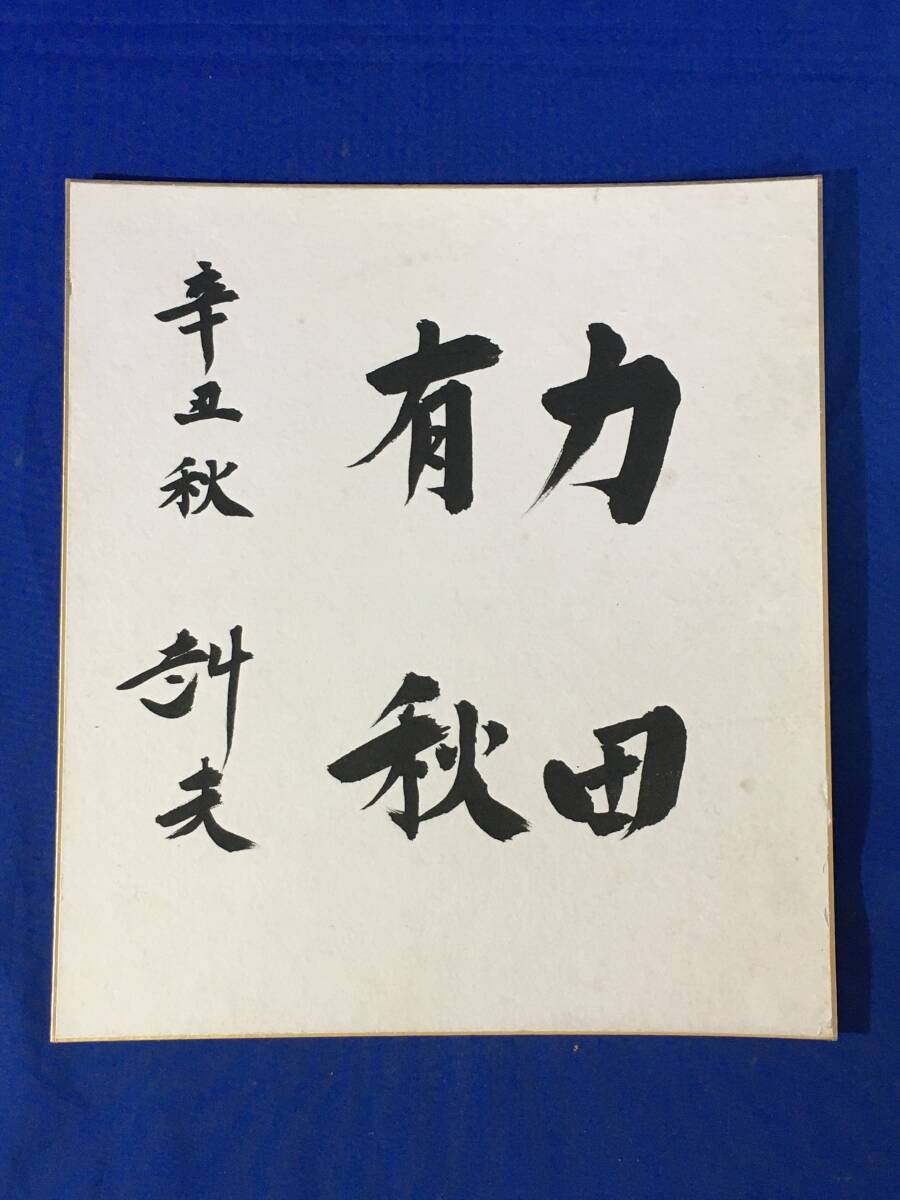 力田
有秋
辛丑秋 赳夫